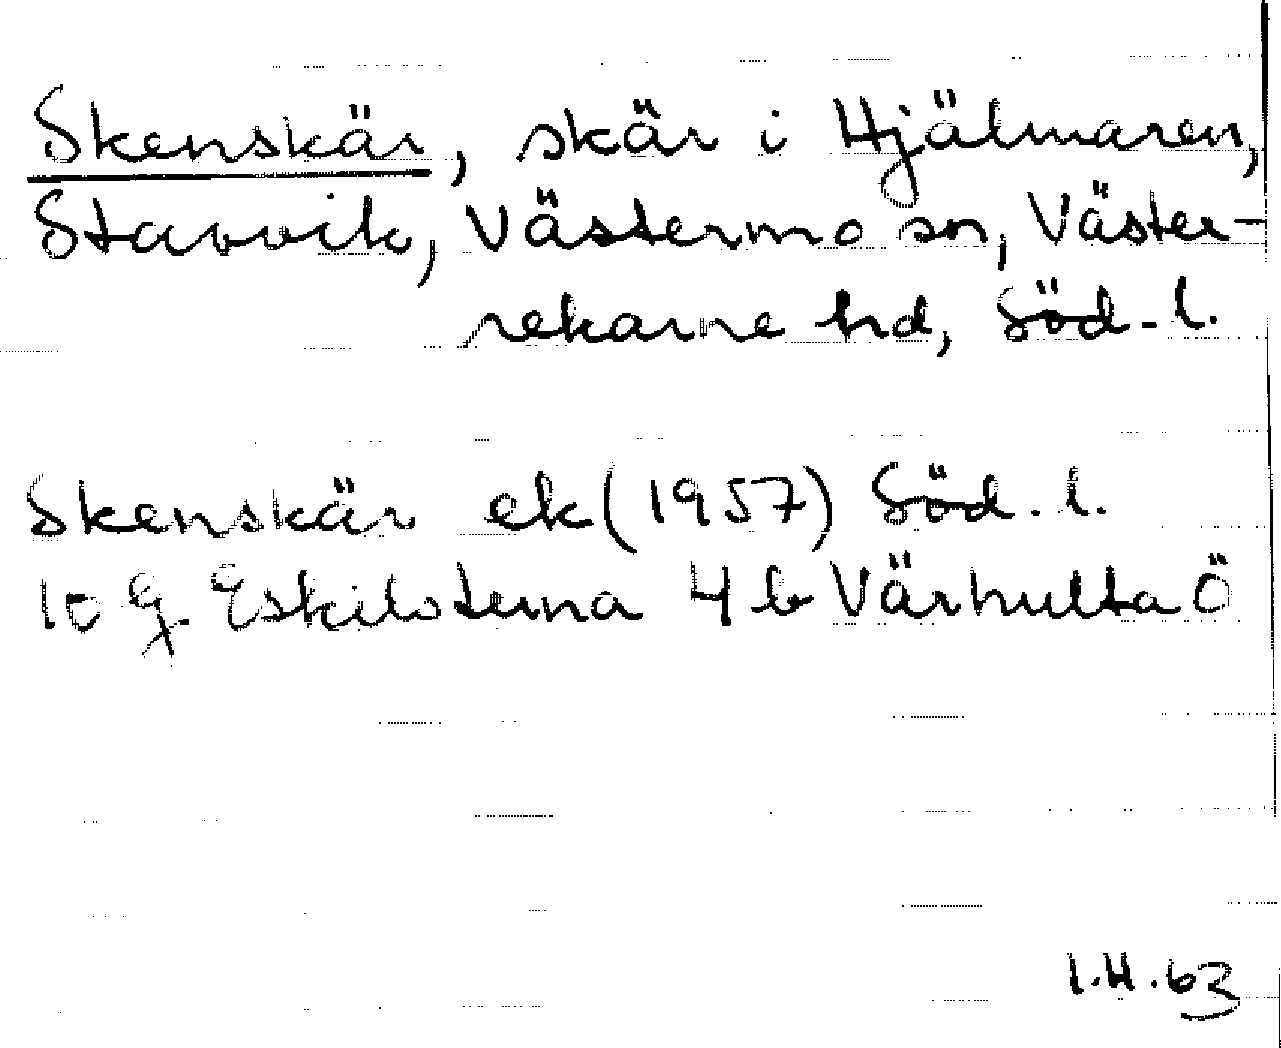 Skenskär, skär i Hjälmaren,
Stavvik, Västermo sn, Väster-
rekarne hd, Söd. l.
Skenskär ek (1957) Söd. l.
10 G. Eskilstuna 4 b Värhulta Ö
I.H. 63